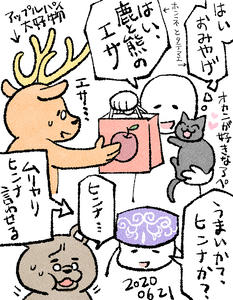 はい
おみやげ
ホニネとタテミエ
はい、
鹿と熊の
エサ
アップルパイ
大好物
エサ…
オカンが好きなろ。
ムリヤリ
ヒンナ
言わせる
ヒンナ…
うまいか?、
ヒンナか?
2020
0621